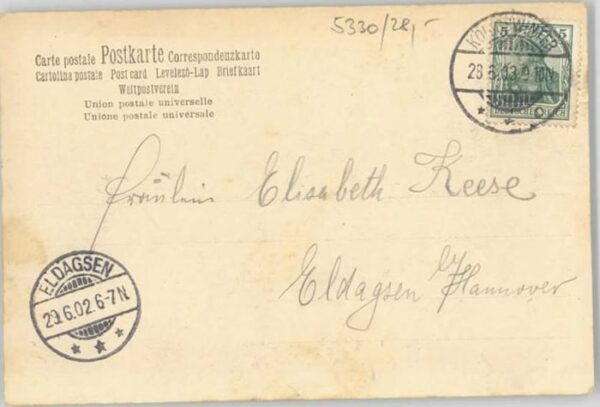 5330/28,-
Carte postale Postkarte Correspondenzkarte
Cartolina postale Post card Levelezö-Lap Briefkaart
Weltpostverein
Union postale universelle
Unione postale universale
KÖNIGSWINTER
5 5
28.6.03.9-10N
DEUTSCHES REICH
Fräulein Elisabeth Keese
Eldagsen Hannover
ELDAGSEN
29.6.02.6-7N